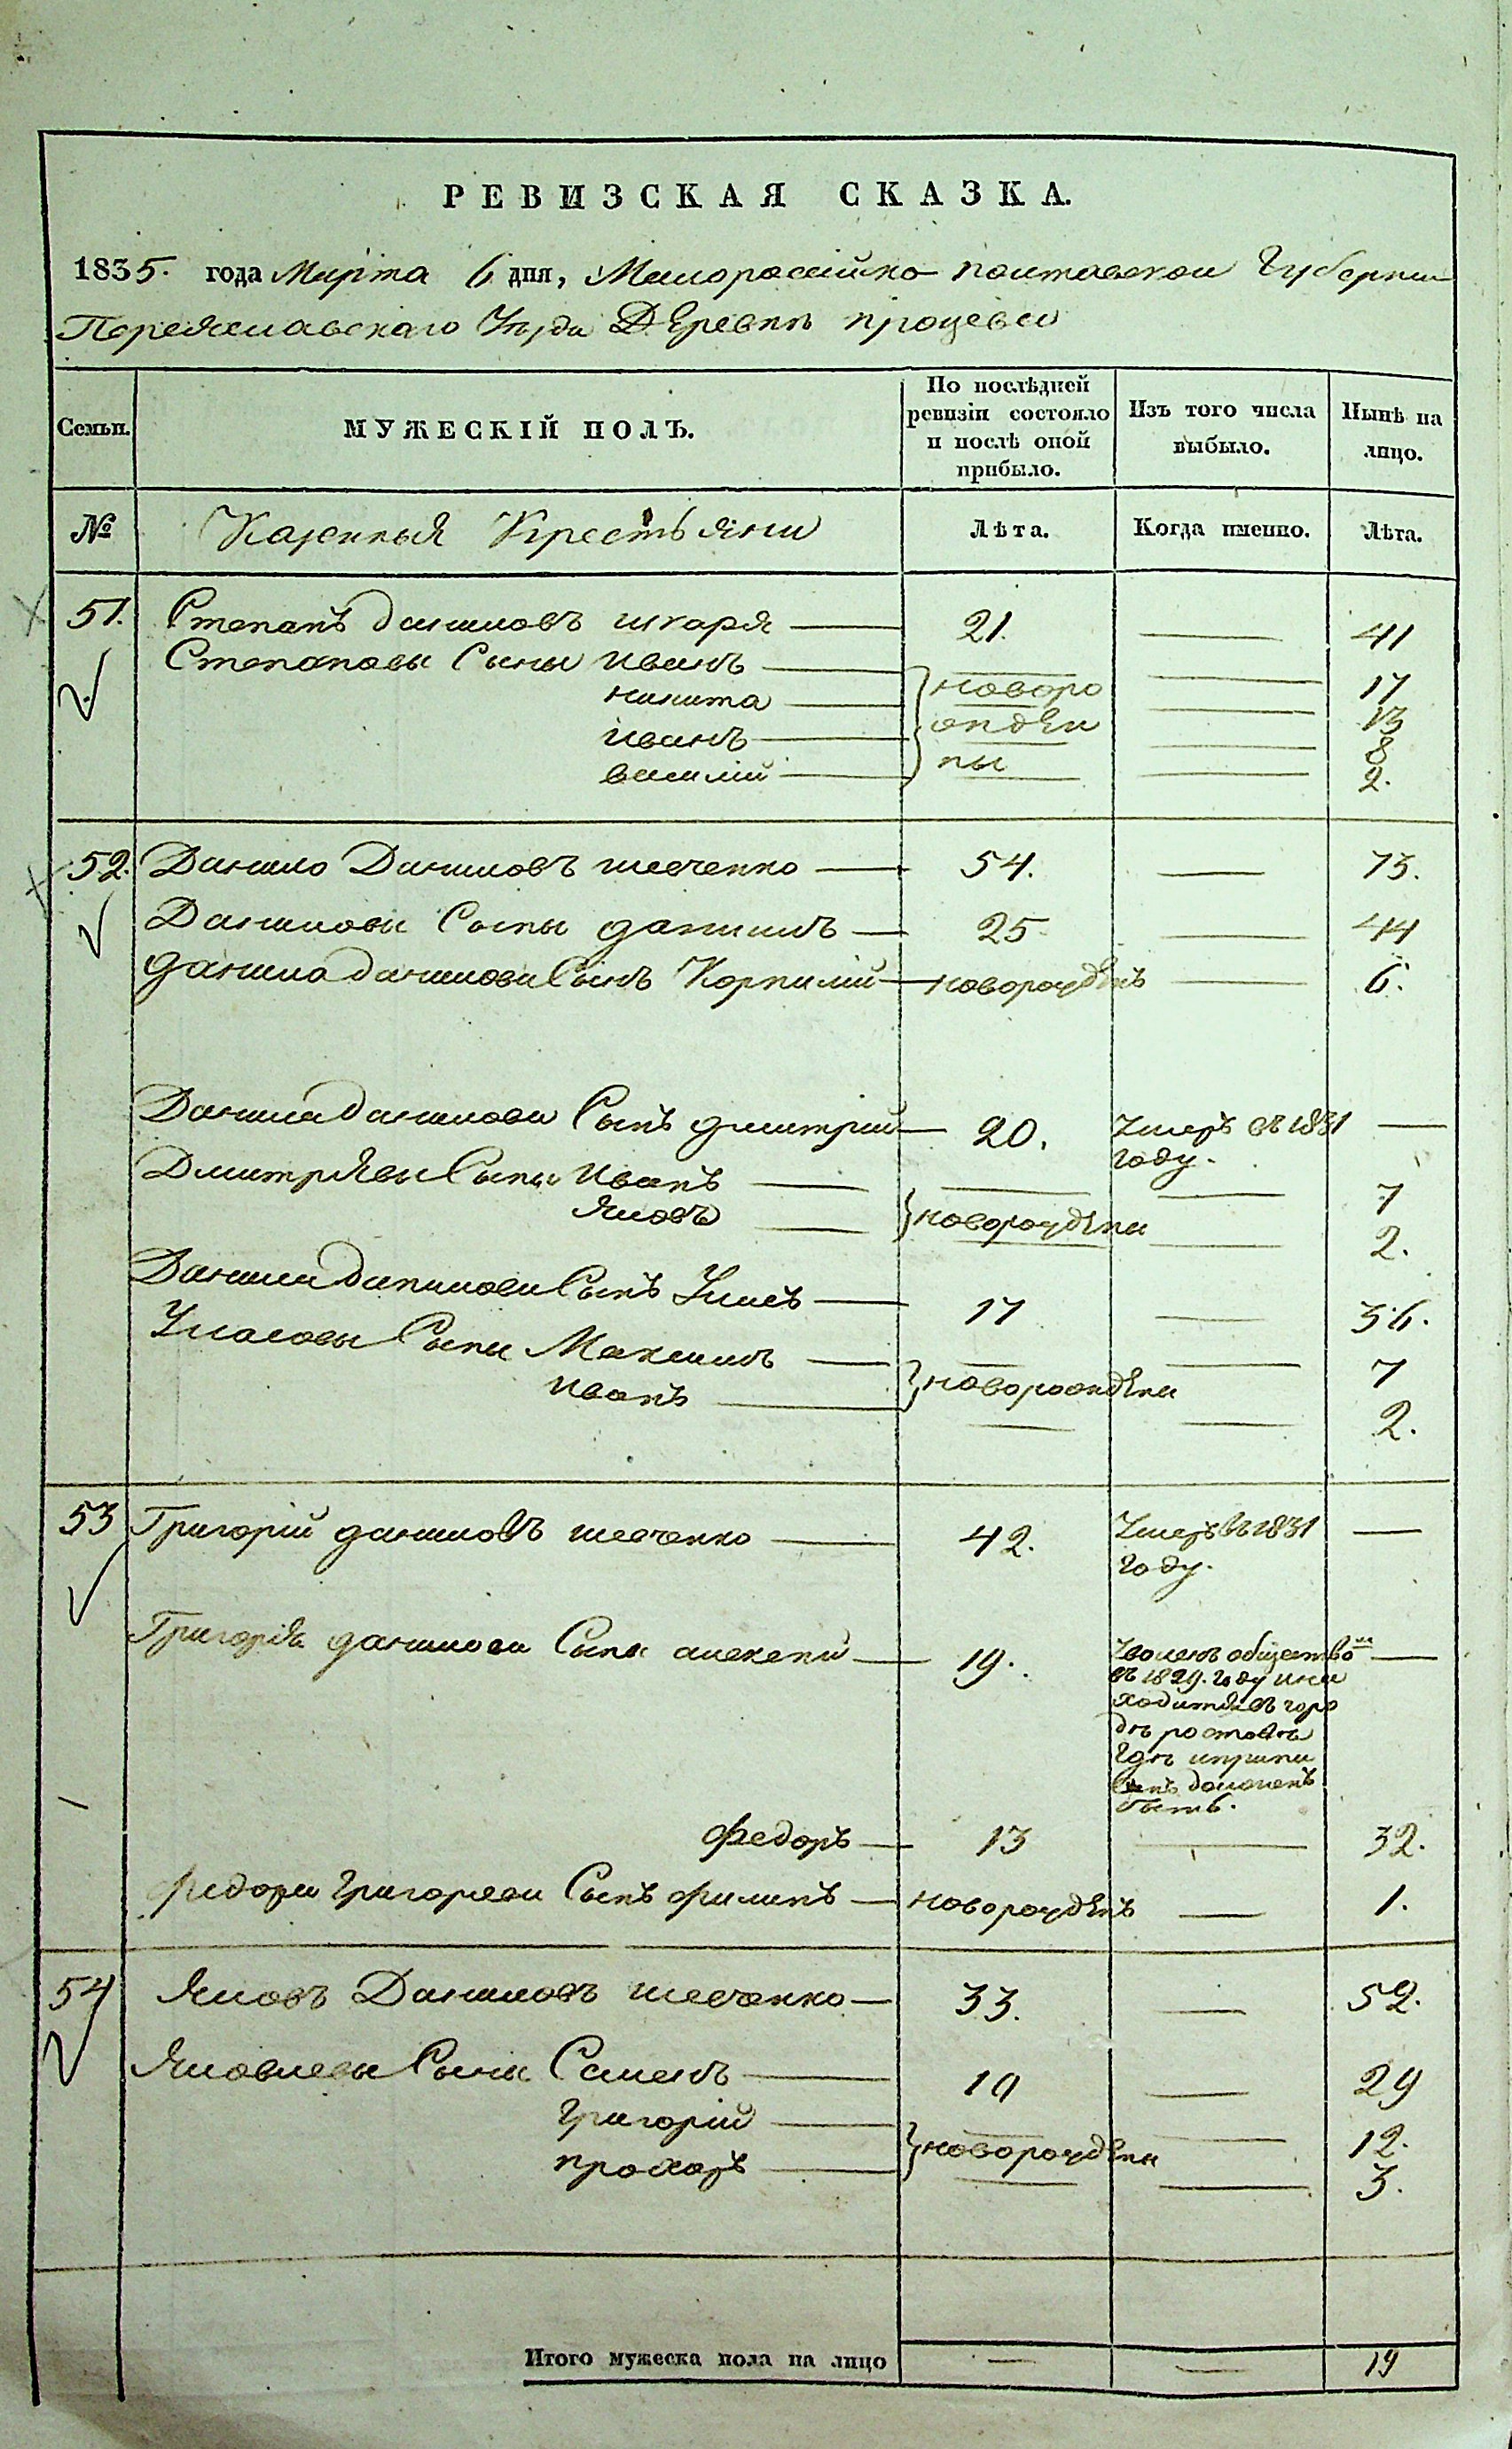 РЕВИЗСКАЯ СКАЗКА.
1835. года Марта 6 дня, Малоросійско полтавской Губерніи
Переяславскаго Уѣзда Деревни процевки
Семьи.
МУЖЕСКІЙ ПОЛЪ.
По послѣдней
ревизіи состояло
и послѣ оной
прибыло.
Изъ того числа
выбыло.
Нынѣ на
лицо.
№ Казенныя Крестьяни Лѣта. Когда именно. Лѣта.
51. Степанъ даниловъ шкаря — 21. — 41
Степановы Сыны иванъ — — 17
никита — новоро — 13
иванъ — жден — 8
василій — ны — 2.
52. Данило Даниловъ шевченко — 54. — 73.
Данилови Сыны данилъ — 25 — 44
данила данилови Сынъ Корнилій — новорожденъ — 6.
Данила данилови Сынъ дмитрій — 20. Умеръ въ 1831 —
году.
Дмитріевы Сыны иванъ — — 7
яковъ — новорождени — 2.
Данила данилови Сынъ Уласъ — 17 — 36.
Уласовы Сыны Максимъ — — 7
иванъ — новорождени — 2.
53 Григорій даниловъ шевченко — 42. Умеръ въ 1831 —
году.
Григорія данилови Сыны алексей — 19. Уволенъ обществомъ —
въ 1829. году и на
ходится въ горо
дѣ ростовѣ
гдѣ и припи
санъ долженъ
быть.
федоръ — 13 — 32.
федора григореви Сынъ филипъ — новорожденъ — 1.
54 Яковъ Даниловъ шевченко — 33. — 52.
Яковлевы Сыны Семенъ — 10 — 29
григорій — — 12.
прохоръ — новорождени — 3.
Итого мужеска пола на лицо — — 19